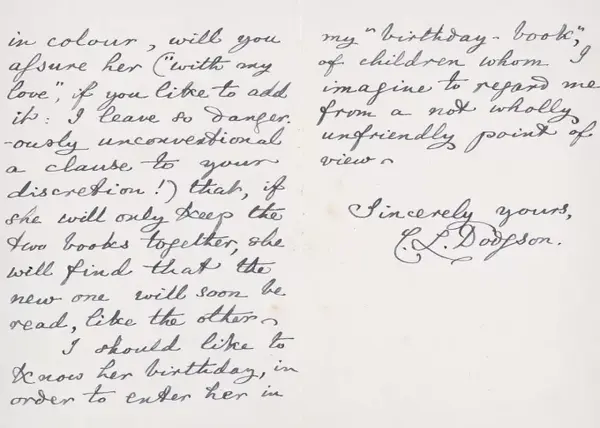 in colour, will you
assure her ("with my
love", if you like to add
it: I leave so danger-
-ously unconventional
a clause to your
discretion!) that, if
she will only keep the
two books together, she
will find that the
new one will soon be
read, like the other.
I should like to
know her birthday, in
order to enter her in
my "birthday-book",
of children whom I
imagine to regard me
from a not wholly
unfriendly point of
view.
Sincerely yours,
C. L. Dodgson.